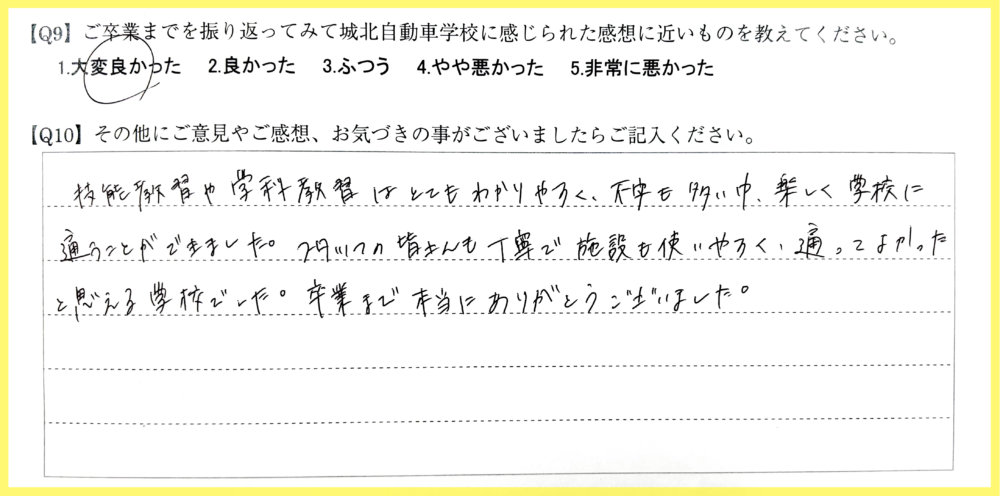 【Q9】ご卒業までを振り返ってみて城北自動車学校に感じられた感想に近いものを教えてください。
1.大変良かった 2.良かった 3.ふつう 4.やや悪かった 5.非常に悪かった
【Q10】その他にご意見やご感想、お気づきの事がございましたらご記入ください。
技能教習や学科教習はとてもわかりやすく、不安も多い中、楽しく学校に
通うことができました。スタッフの皆さんも丁寧で施設も使いやすく、通ってよかった
と思える学校でした。卒業まで本当にありがとうございました。